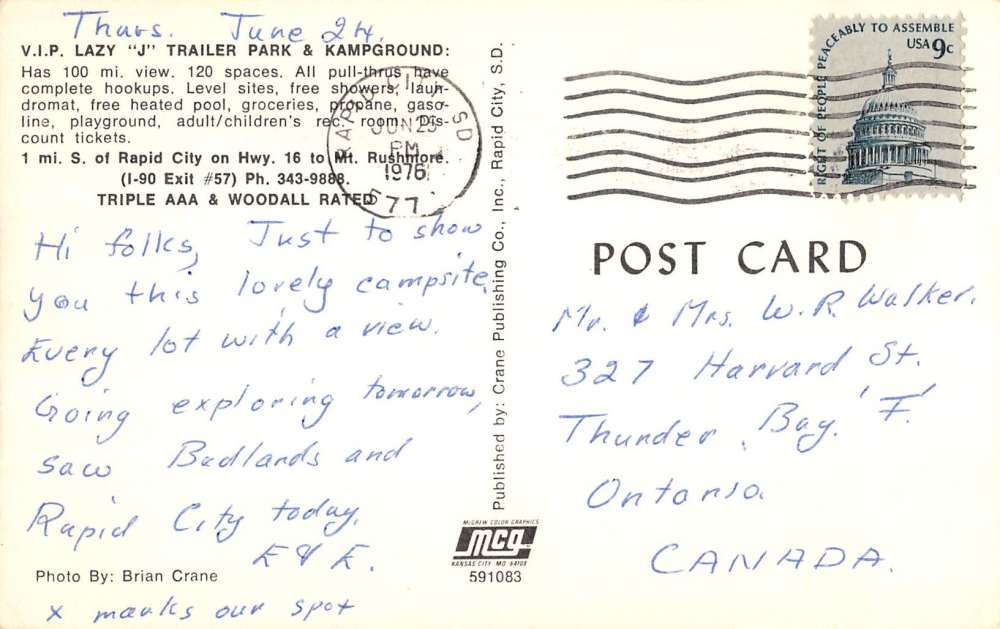 Thurs. June 24.
V.I.P. LAZY "J" TRAILER PARK & KAMPGROUND:
Has 100 mi. view. 120 spaces. All pull-thrus have
complete hookups. Level sites, free showers, laun-
dromat, free heated pool, groceries, propane, gaso-
line, playground, adult/children's rec. room. Dis-
count tickets.
1 mi. S. of Rapid City on Hwy. 16 to Mt. Rushmore.
(I-90 Exit #57) Ph. 343-9888.
TRIPLE AAA & WOODALL RATED
Hi folks, Just to show
you this lovely campsite.
Every lot with a view.
Going exploring tomorrow,
saw Badlands and
Rapid City today.
E & E.
Photo By: Brian Crane
x marks our spot
RAPID CITY SD
JUN 25
PM
1976
577
Published by: Crane Publishing Co., Inc., Rapid City, S.D.
McGREW COLOR GRAPHICS
mcg
KANSAS CITY MO 64108
591083
RIGHT OF PEOPLE PEACEABLY TO ASSEMBLE
USA 9c
POST CARD
Mr. & Mrs. W. R. Walker.
327 Harvard St.
Thunder Bay. 'F'.
Ontario.
CANADA.